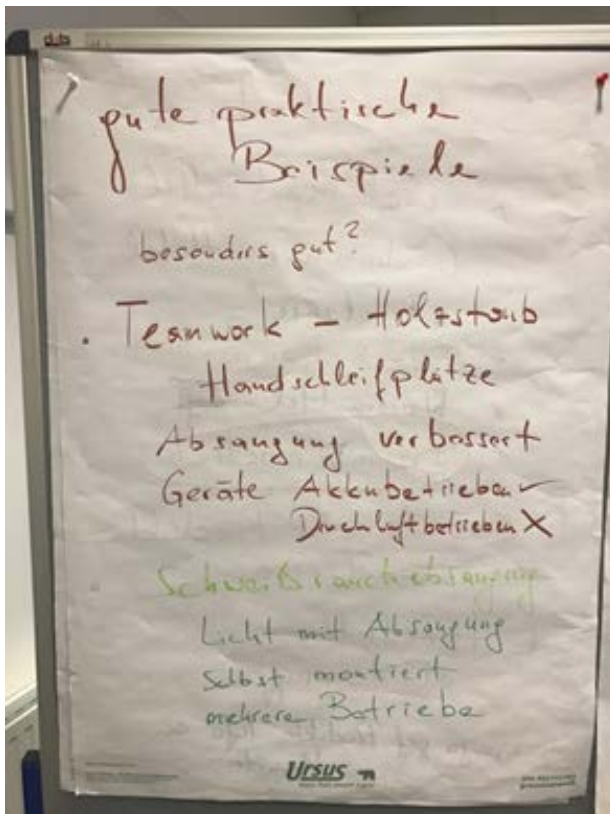 gute praktische
Beispiele
besonders gut?
. Teamwork – Holzstaub
Handschleifplätze
Absaugung verbessert
Geräte Akkubetrieben ✓
Druckluftbetrieben X
Schweißrauchabsaugung
Licht mit Absaugung
Selbst montiert
mehrere Betriebe
Ursus